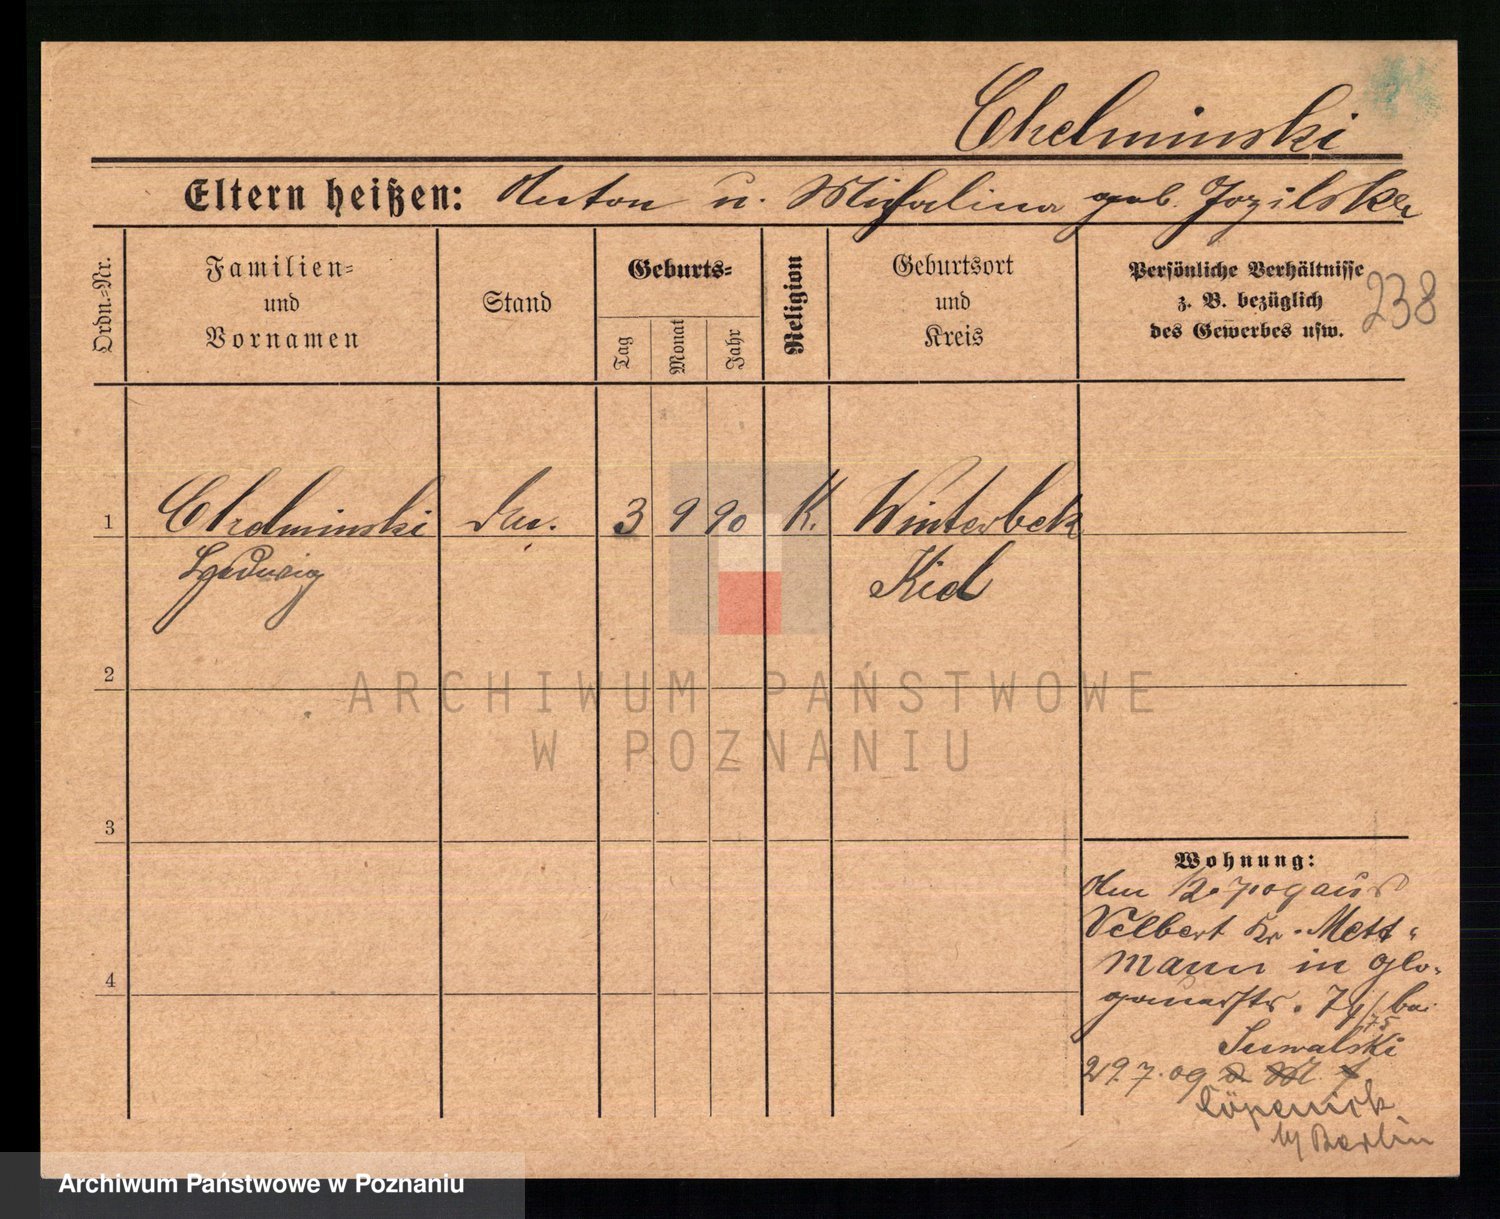 Chelminski
Eltern heißen: Anton u. Michalina geb. Jozilska
238
Ordn.=Nr.
Familien=
und
Vornamen
Stand
Geburts=
Tag
Monat
Jahr
Religion
Geburtsort
und
Kreis
Persönliche Verhältnisse
z. B. bezüglich
des Gewerbes usw.
1 Chelminski 3 9 90 K. Winterbek
Ludwig Kiel
2
3
4
Wohnung:
12.7.09 aus
Velbert Kr. Mett-
mann in Glo-
gauerstr. 74/75 bei
Suwalski
29.7.09
Cöpenick
b/ Berlin
ARCHIWUM PAŃSTWOWE
W POZNANIU
Archiwum Państwowe w Poznaniu